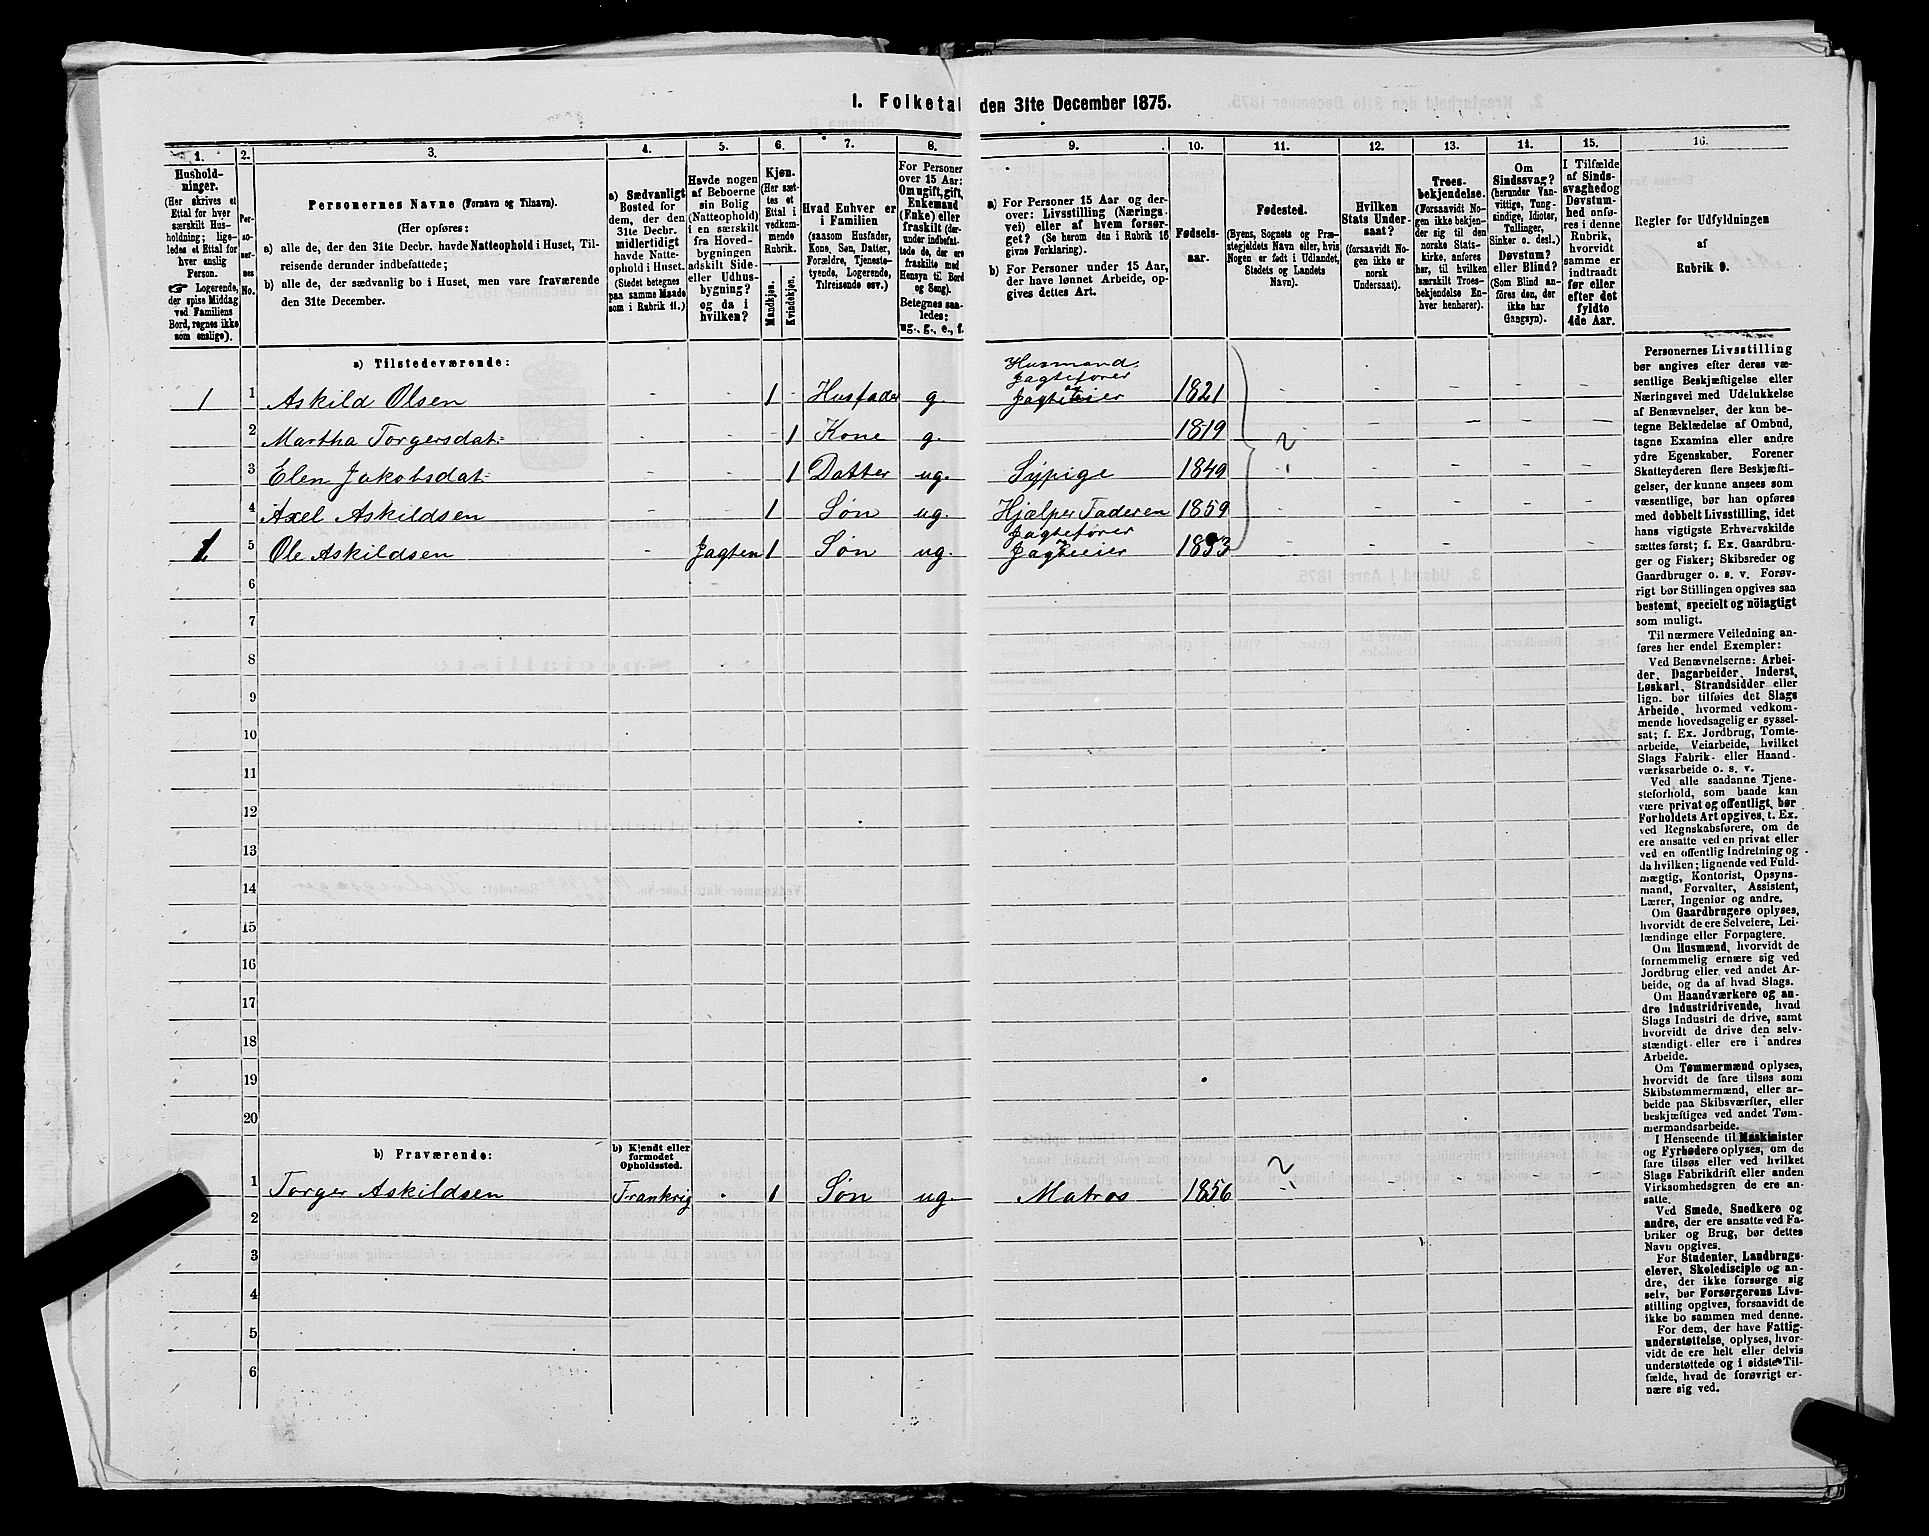 1. Folketal den 31te December 1875.
1.
Hushold-
ninger.
(Her skrives et
Ettal for hver
særskilt Hus-
holdning; lige-
ledes et Ettal for
hver enslig
Person.
☛ Logerende,
der spise Middag
ved Familiens
Bord, regnes ikke
som enslige).
2.
Per-
so-
ner-
nes
No.
3.
Personernes Navne (Fornavn og Tilnavn).
(Her opføres:
a) alle de, der den 31te Decbr. havde Natteophold i Huset, Til-
reisende derunder indbefattede;
b) alle de, der sædvanlig bo i Huset, men vare fraværende
den 31te December.
4.
a) Sædvanligt
Bosted for
dem, der den
31te Decbr.
midlertidigt
havde Natte-
ophold i Huset.
(Stedet betegnes
paa samme Maade
som i Rubrik 11.)
5.
Havde nogen
af Beboerne
sin Bolig
(Natteophold)
i en særskilt
fra Hoved-
bygningen
adskilt Side-
eller Udhus-
bygning?
og da i
hvilken?
6.
Kjøn.
(Her sæt-
tes et
Ettal i
vedkom-
mende
Rubrik.
Mandkjøn.
Kvindekjøn.
7.
Hvad Enhver er
i Familien
(saasom Husfader,
Kone, Søn, Datter,
Forældre, Tjeneste-
tyende, Logerende,
Tilreisende osv.)
8.
For Personer
over 15 Aar:
Om ugift, gift,
Enkemand
(Enke) eller
fraskilt (der-
under indbefat-
tede de, der ere
fraskilte med
Hensyn til Bord
og Seng).
Betegnes saa-
ledes:
ug., g., e., f.
9.
a) For Personer 15 Aar og der-
over: Livsstilling (Nærings-
vei) eller af hvem forsør-
get? (Se herom den i Rubrik 16
givne Forklaring).
b) For Personer under 15 Aar,
der have lønnet Arbeide, op-
gives dettes Art.
10.
Fødsels-
aar.
11.
Fødested.
(Byens, Sognets og Præ-
stegjeldets Navn eller, hvis
Nogen er født i Udlandet,
Stedets og Landets
Navn).
12.
Hvilken
Stats Under-
saat?
(forsaavidt No-
gen ikke er
norsk
Undersaat).
13.
Troes-
bekjendelse.
(Forsaavidt No-
gen ikke bekjen-
der sig til den
norske Stats-
kirke, anføres
her, til hvilken
særskilt Troes-
bekjendelse En-
hver henhører).
14.
Om
Sindssvag?
(herunder Van-
vittige, Tung-
sindige, Idioter,
Tullinger,
Sinker o. desl.)
Døvstum?
eller Blind?
(Som Blind an-
føres den, der
ikke har
Gangsyn).
15.
I Tilfælde
af Sinds-
svaghed og
Døvstum-
hed anfø-
res i denne
Rubrik,
hvorvidt
samme er
indtraadt
før eller
efter det
fyldte
4de Aar.
16.
Regler for Udfyldningen
af
Rubrik 9.
a) Tilstedeværende:
1 1 Askild Olsen - - 1 - Husfader g. Husmand Jagtefører og Jagteeier 1821 - - - - -
2 Martha Torgersdat: - - 1 Kone g. 1819
3 Elen Jakobsdat: - - 1 Datter ug. Sypige 1849
4 Axel Askildsen - - 1 Søn ug. Hjælper Faderen 1859
1 5 Ole Askildsen - Jagten 1 Søn ug. Jagtefører og Jagteeier 1853
6
7
8
9
10
11
12
13
14
15
16
17
18
19
20
b) Fraværende:
b) Kjendt eller
formodet
Opholdssted.
1 Torger Askildsen Frankrig - 1 Søn ug. Matros 1856 ?
2
3
4
5
6
Personernes Livsstilling
bør angives efter deres væ-
sentlige Beskjæftigelse eller
Næringsvei med Udelukkelse
af Benævnelser, der kun be-
tegne Beklædelse af Ombud,
tagne Examina eller andre
ydre Egenskaber. Forener
Skatteyderen flere Beskjæfti-
gelser, der kunne ansees som
væsentlige, bør han opføres
med dobbelt Livsstilling, idet
hans vigtigste Erhvervskilde
sættes først; f. Ex. Gaardbru-
ger og Fisker; Skibsreder og
Gaardbruger o. s. v. Forøv-
rigt bør Stillingen opgives saa
bestemt, specielt og nöiagtigt
som muligt.
Til nærmere Veiledning an-
føres her endel Exempler:
Ved Benævnelserne: Arbei-
der, Dagarbeider, Inderst,
Løskarl, Strandsidder eller
lign. bør tilføies det Slags
Arbeide, hvormed vedkom-
mende hovedsagelig er syssel-
sat; f. Ex. Jordbrug, Tomte-
arbeide, Veiarbeide, hvilket
Slags Fabrik- eller Haand-
værksarbeide o. s. v.
Ved alle saadanne Tjene-
steforhold, som baade kan
være privat og offentligt, bør
Forholdets Art opgives, t. Ex.
ved Regnskabsførere, om de
ere ansatte ved en privat eller
ved en offentlig Indretning og
da hvilken; lignende ved Fuld-
mægtig, Kontorist, Opsyns-
mand, Forvalter, Assistent,
Lærer, Ingeniør og andre.
Om Gaardbrugere oplyses,
hvorvidt de ere Selveiere, Lei-
lændinge eller Forpagtere.
Om Husmænd, hvorvidt de
fornemmelig ernære sig ved
Jordbrug eller ved andet Ar-
beide, og da af hvad Slags.
Om Haandværkere og an-
dre Industridrivende, hvad
Slags Industri de drive, samt
hvorvidt de drive den selv-
stændigt eller ere i andres
Arbeide.
Om Tømmermænd oplyses,
hvorvidt de fare tilsøs som
Skibstømmermænd, eller ar-
beide paa Skibsværfter, eller
beskjæftiges ved andet Tøm-
mermandsarbeide.
I Henseende til Maskinister
og Fyrbødere oplyses, om de
fare tilsøs eller ved hvilket
Slags Fabrikdrift eller anden
Virksomhedsgren de ere an-
satte.
Ved Smede, Snedkere og
andre, der ere ansatte ved Fa-
briker og Brug, bør dettes
Navn opgives.
For Studenter, Landbrugs-
elever, Skoledisciple og an-
dre, der ikke forsørge sig
selv, bør Forsørgerens Livs-
stilling opgives, forsaavidt de
ikke bo sammen med denne.
For dem, der have Fattig-
understøttelse, oplyses, hvor-
vidt de ere helt eller delvis
understøttede og i sidste Til-
fælde, hvad de forøvrigt er-
nære sig ved.